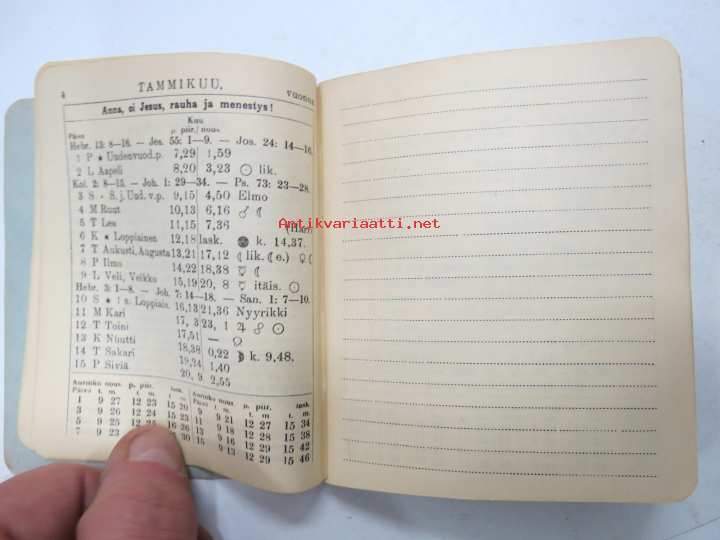 4 TAMMIKUU, vuonna
Anna, oi Jesus, rauha ja menestys!
Kuu
Päiva p. piir. nous.
Hebr. 13: 8—16. — Jes. 55: 1—9. — Jos. 24: 14—16.
1 P ★ Uudenvuod.p. 7,29 1,59
2 L Aapeli 8,20 3,23 ☉ lik.
Kol. 2: 8—15. — Joh. 1: 29—34. — Ps. 73: 23—28.
3 S - S. j. Uud. v.p. 9,15 4,50 Elmo
4 M Ruut 10,13 6,16 ♂ ☾
5 T Lea 11,15 7,36
6 K ★ Loppiainen 12,18 lask. k. 14,37.
7 T Aukusti, Augusta 13,21 17,12 ☾ lik. (☾ e.) ♀ ☾
8 P Ilmo 14,22 18,38 ☿ ☾
9 L Veli, Veikko 15,19 20, 8 ☿ itäis. ☉
Hebr. 3: 1—8. — Joh. 7: 14—18. — San. 1: 7—10.
10 S ★ 1 s. Loppiais. 16,13 21,36 Nyyrikki
11 M Kari 17, 3 23, 1 ♃ ☍ ☉
12 T Toini 17,51 — ♀
13 K Nuutti 18,38 0,22 ☽ k. 9,48.
14 T Sakari 19,24 1,40
15 P Sivia 20, 9 2,55
Aurinko nous. p. piir. lask. Aurinko nous. p. piir. lask.
Päivä t. m. t. m. t. m. Päivä t. m. t. m. t. m.
1 9 27 12 23 15 20 9 9 21 12 27 15 34
3 9 26 12 24 15 23 11 9 18 12 28 15 38
5 9 25 12 15 26 13 9 16 12 29 15 42
7 9 23 15 30 15 9 13 12 29 15 46
Antikvariaatti.net